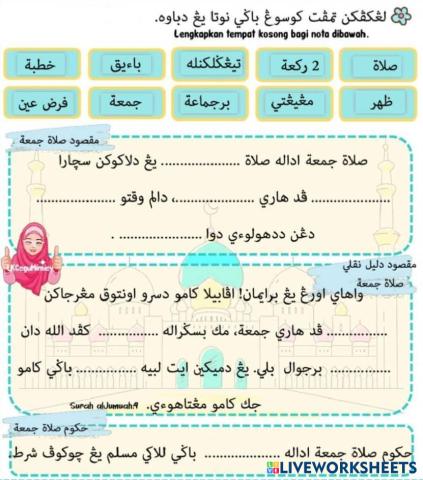 لڠکڤکن تمڤت کوسوڠ باڬي نوتا يڠ دباوه.
Lengkapkan tempat kosong bagi nota dibawah.
صلاة
2 رکعة
تيڠݢلکنله
باءيق
خطبة
ظهر
مڠيڠتي
برجماعة
جمعة
فرض عين
مقصود صلاة جمعة
صلاة جمعة اداله صلاة .................... يڠ دلاکوکن سچارا
.................... ڤد هاري ....................، دالم وقتو ....................
دڠن ددهولوءي دوا .................... .
KCeguMimey
مقصود دليل نقلي
صلاة جمعة
واهاي اورڠ يڠ برايمان! اڤابيلا کامو دسرو اونتوق مڠرجاکن
............... ڤد هاري جمعة، مك بسݢراله ............... کڤد الله دان
............... برجوال بلي. يڠ دميکين ايت لبيه ............... باݢي کامو
جك کامو مڠتاهوءي. Surah alJumuah:9
حکوم صلاة جمعة
حکوم صلاة جمعة اداله .................... باݢي للاکي مسلم يڠ چوکوڤ شرط.
LIVEWORKSHEETS